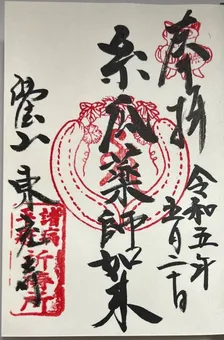 奉拝
令和五年
五月二十日
糸瓜薬師如来
東光寺
諸病
祈祷所